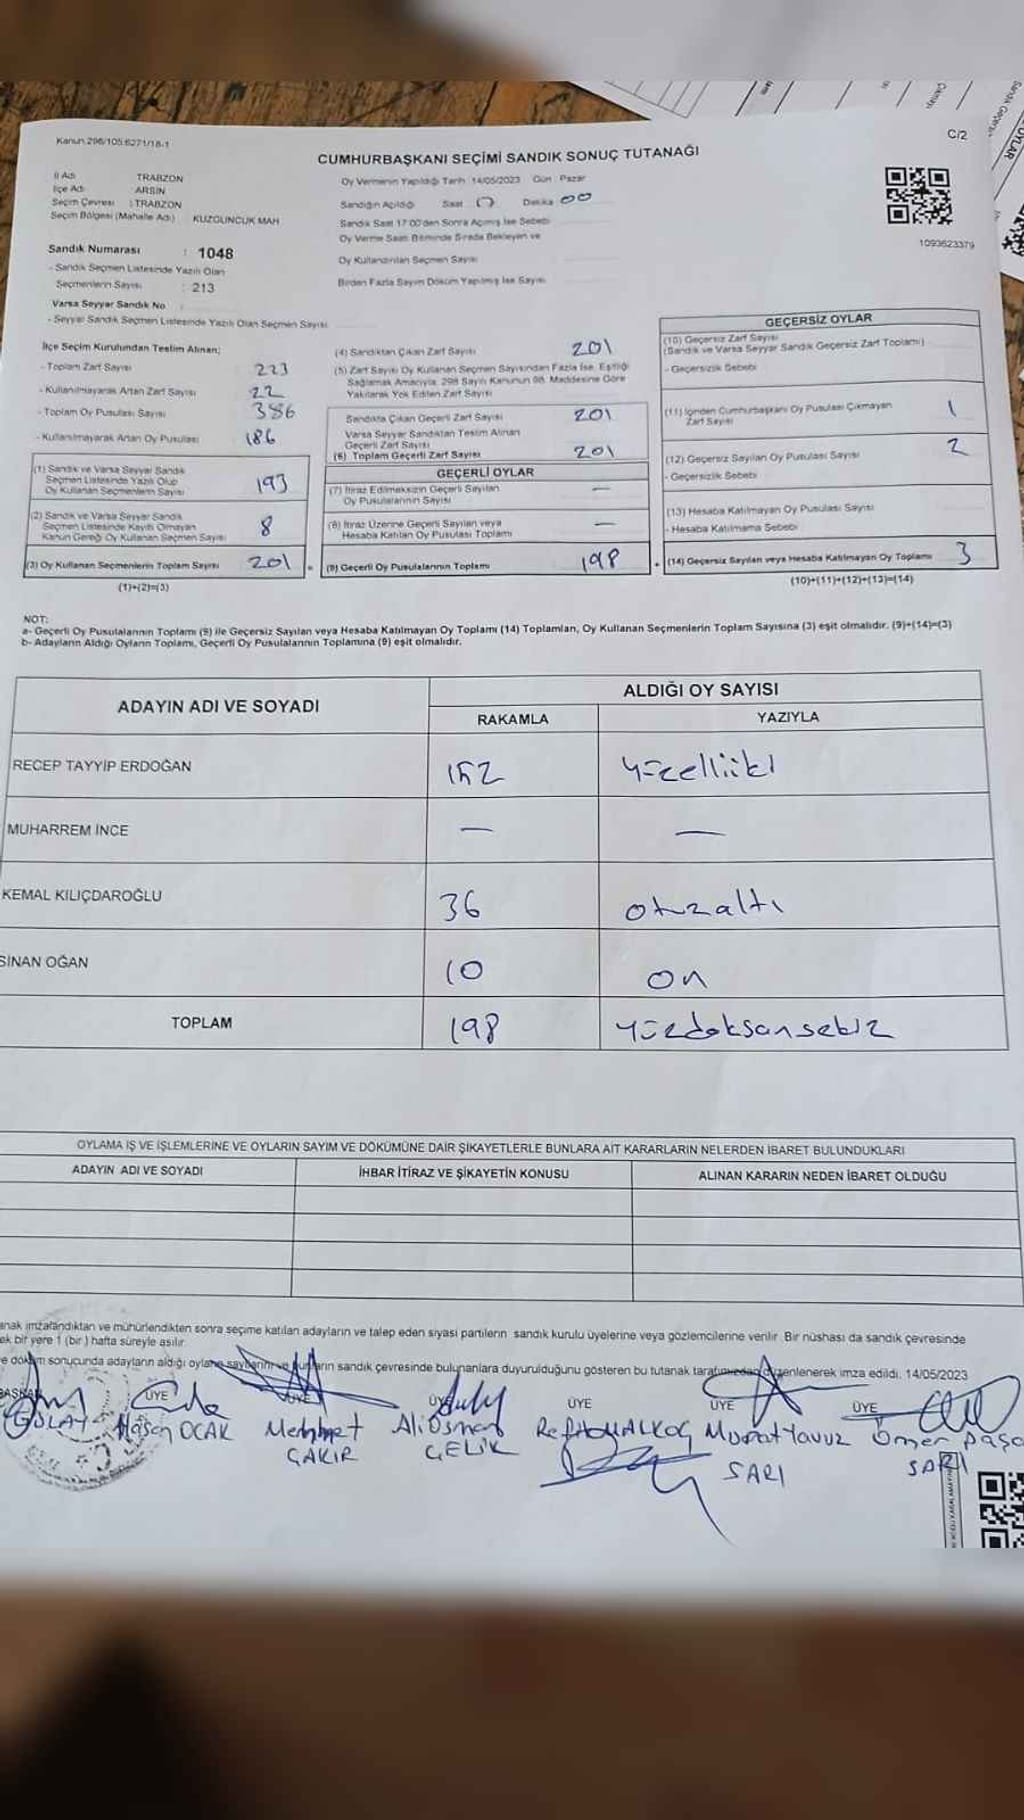 Kanun.296/105.6271/18-1
C/2
CUMHURBAŞKANI SEÇİMİ SANDIK SONUÇ TUTANAĞI
İl Adı TRABZON
İlçe Adı ARSİN
Seçim Çevresi : TRABZON
Seçim Bölgesi (Mahalle Adı) KUZGUNCUK MAH
Oy Vermenin Yapıldığı Tarih 14/05/2023 Gün Pazar
Sandığın Açıldığı Saat Dakika 00
Sandık Saat 17:00'den Sonra Açılmış İse Sebebi
Oy Verme Saati Bitiminde Sırada Bekleyen ve
Oy Kullandırılan Seçmen Sayısı
Birden Fazla Sayım Döküm Yapılmış İse Sayısı
1093623379
Sandık Numarası : 1048
- Sandık Seçmen Listesinde Yazılı Olan
Seçmenlerin Sayısı : 213
Varsa Seyyar Sandık No
- Seyyar Sandık Seçmen Listesinde Yazılı Olan Seçmen Sayısı
İlçe Seçim Kurulundan Teslim Alınan;
- Toplam Zarf Sayısı 223
- Kullanılmayarak Artan Zarf Sayısı 22
- Toplam Oy Pusulası Sayısı 386
- Kullanılmayarak Artan Oy Pusulası 186
(1) Sandık ve Varsa Seyyar Sandık
Seçmen Listesinde Yazılı Olup
Oy Kullanan Seçmenlerin Sayısı 193
(2) Sandık ve Varsa Seyyar Sandık
Seçmen Listesinde Kayıtlı Olmayan
Kanun Gereği Oy Kullanan Seçmen Sayısı 8
(3) Oy Kullanan Seçmenlerin Toplam Sayısı 201
(1)+(2)=(3)
(4) Sandıktan Çıkan Zarf Sayısı 201
(5) Zarf Sayısı Oy Kullanan Seçmen Sayısından Fazla İse, Eşitliği
Sağlamak Amacıyla, 298 Sayılı Kanunun 98. Maddesine Göre
Yakılarak Yok Edilen Zarf Sayısı
Sandıkta Çıkan Geçerli Zarf Sayısı 201
Varsa Seyyar Sandıktan Teslim Alınan
Geçerli Zarf Sayısı
(6) Toplam Geçerli Zarf Sayısı 201
GEÇERLİ OYLAR
(7) İtiraz Edilmeksizin Geçerli Sayılan
Oy Pusulalarının Sayısı —
(8) İtiraz Üzerine Geçerli Sayılan veya
Hesaba Katılan Oy Pusulası Toplamı —
(9) Geçerli Oy Pusulalarının Toplamı 198
GEÇERSİZ OYLAR
(10) Geçersiz Zarf Sayısı
(Sandık ve Varsa Seyyar Sandık Geçersiz Zarf Toplamı)
- Geçersizlik Sebebi
(11) İçinden Cumhurbaşkanı Oy Pusulası Çıkmayan
Zarf Sayısı 1
(12) Geçersiz Sayılan Oy Pusulası Sayısı 2
- Geçersizlik Sebebi
(13) Hesaba Katılmayan Oy Pusulası Sayısı
- Hesaba Katılmama Sebebi
(14) Geçersiz Sayılan veya Hesaba Katılmayan Oy Toplamı 3
(10)+(11)+(12)+(13)=(14)
NOT:
a- Geçerli Oy Pusulalarının Toplamı (9) ile Geçersiz Sayılan veya Hesaba Katılmayan Oy Toplamı (14) Toplamları, Oy Kullanan Seçmenlerin Toplam Sayısına (3) eşit olmalıdır. (9)+(14)=(3)
b- Adayların Aldığı Oyların Toplamı, Geçerli Oy Pusulalarının Toplamına (9) eşit olmalıdır.
ADAYIN ADI VE SOYADI
ALDIĞI OY SAYISI
RAKAMLA YAZIYLA
RECEP TAYYİP ERDOĞAN 152 yüzelliiki
MUHARREM İNCE — —
KEMAL KILIÇDAROĞLU 36 otuzaltı
SİNAN OĞAN 10 on
TOPLAM 198 yüzdoksansekiz
OYLAMA İŞ VE İŞLEMLERİNE VE OYLARIN SAYIM VE DÖKÜMÜNE DAİR ŞİKAYETLERLE BUNLARA AİT KARARLARIN NELERDEN İBARET BULUNDUKLARI
ADAYIN ADI VE SOYADI İHBAR İTİRAZ VE ŞİKAYETİN KONUSU ALINAN KARARIN NEDEN İBARET OLDUĞU
anak imzalandıktan ve mühürlendikten sonra seçime katılan adayların ve talep eden siyasi partilerin sandık kurulu üyelerine veya gözlemcilerine verilir. Bir nüshası da sandık çevresinde
ek bir yere 1 (bir) hafta süreyle asılır.
e döküm sonucunda adayların aldığı oyların sayılarını ve bunların sandık çevresinde bulunanlara duyurulduğunu gösteren bu tutanak tarafımızdan düzenlenerek imza edildi. 14/05/2023
BAŞKAN ÜYE ÜYE ÜYE ÜYE ÜYE ÜYE
GÜLAY Hasan OCAK Mehmet Ali Osman Murat Yavuz Ömer Paşa
ÇAKIR ÇELİK SARI SARI